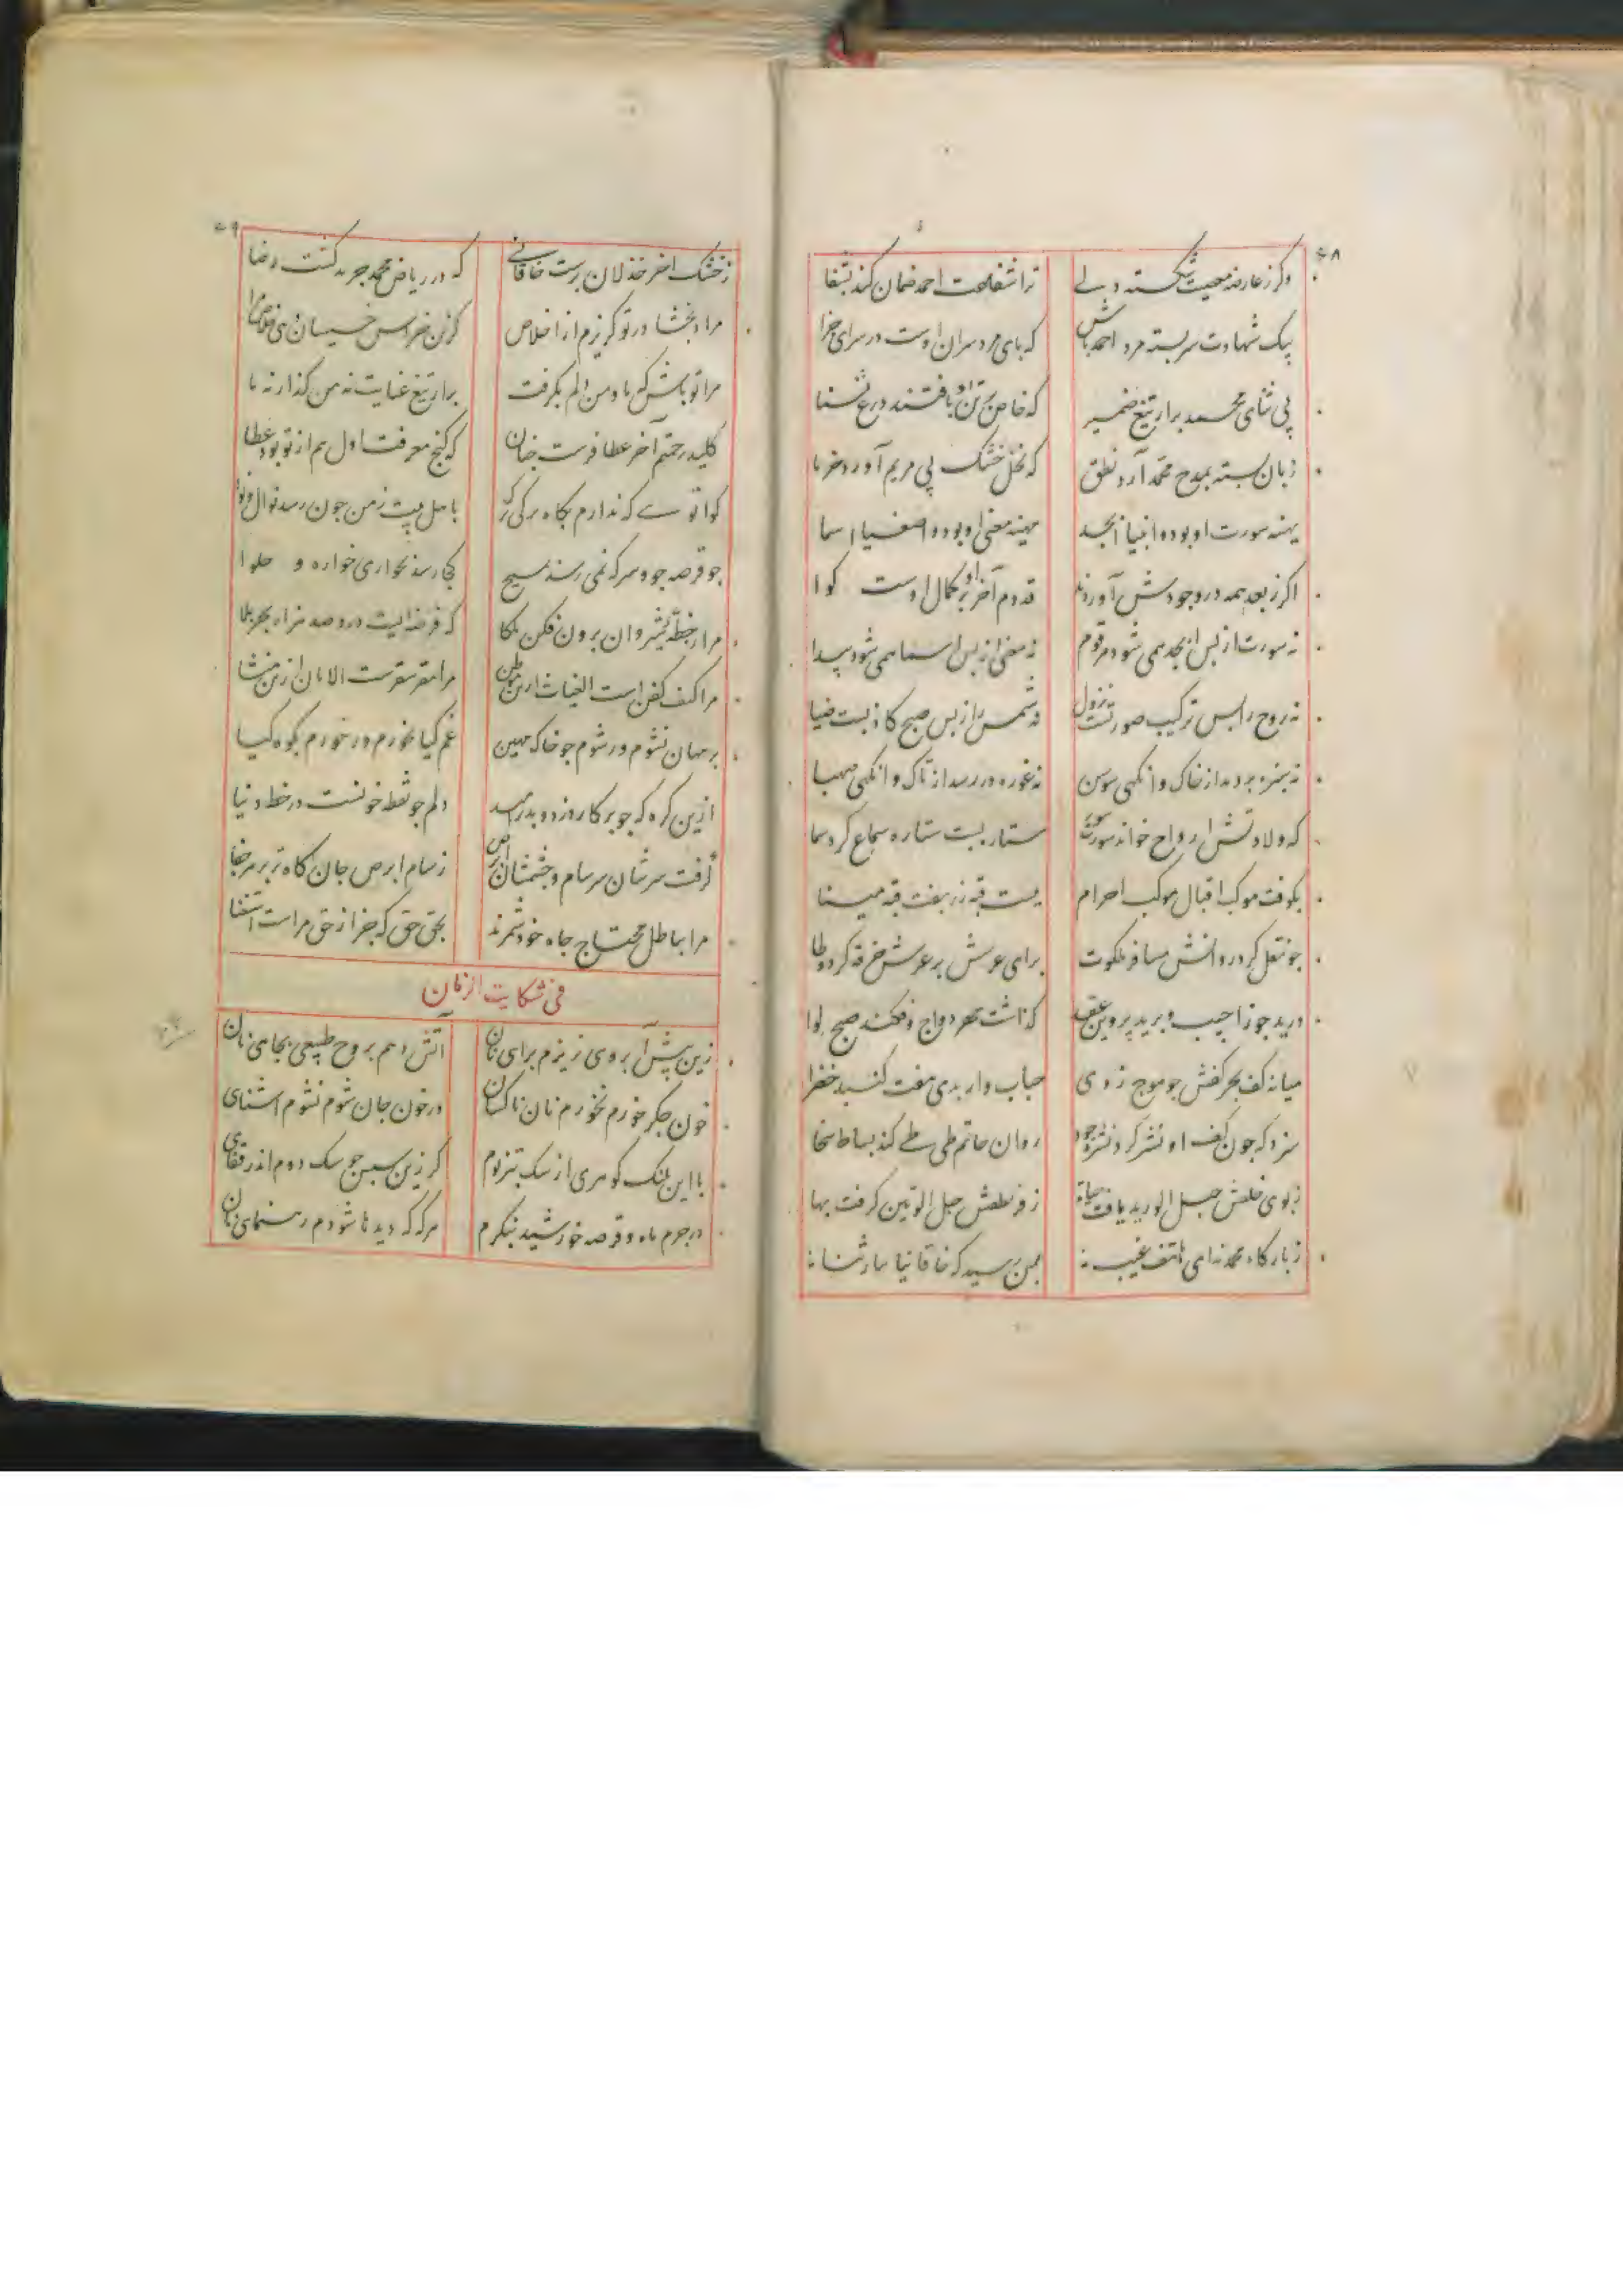 ۶۸
وگر ز عارضه معصیت شکسته دلی ترا شفاعت احمد ضمان کند بشفا
بیک شهادت سربسته مرد احمد باش که پای مرد سران اوست در سرای جزا
پی ثنای محمد برار تیغ ضمیر که خاص بر تن او بافتند درع ثنا
زبان بسته بمدح محمد آرد نطق که نخل خشک پی مریم آورد خرما
بهینه سورت او بود و انبیا ابجد مهینه معنی او بود و اصفیا اسما
اکر ز بعد همه در وجودش آوردند قدوم آخر او بر کمال اوست کوا
نه سورت از پس ابجد همی شود مرقوم نه معنی از پس اسما همی شود پیدا
نه روح را پس ترکیب صورتست نزول نه شمس را ز پس صبح کاذبست ضیا
نه سبزه بردمد از خاک وانکهی سوسن نه غوره در رسد از تاک وانکهی صهبا
که ولادتش ارواح خوانده سوره نور ستار بست ستاره سماع کرد سما
بکوفت موکب اقبال مرکب احرام ببست قبه زربفت قبه مینا
چو نقل کرد روانش مسافر ملکوت برای عرش بر عرش خرقه کرد وطا
درید جوزا جیب و برید پروین عقد گذاشت مهر دواج و فکند صبح لوا
میانه کف بحر کفش چو موج زدی حباب وار بدی هفت کنبد خضرا
سزد که چون کف او نشر کرد نشره جود روان حاتم طی طی کند بساط سخا
ز بوی خلقش حبل الورید یافت حیاة ز فر لطفش حبل المتین کرفت بها
ز بارکاه محمد ندای هاتف غیب بمن رسید که خاقانیا بیار ثنا
۶۹
ز خشک آخر خذلان برست خاقانی که در ریاض محمد چرید کشت رضا
مرا ببخشا در تو کریزم از اخلاص کزین خراس خسیسان دهی خلاص مرا
مرا تو باش که ما و من الم بکرفت برار تیغ عنایت نه من گذار نه ما
کلید رحمتم آخر عطا فرست چنان که کنج معرفت اول هم از تو بود عطا
کوا توئی که ندارم بکاه برکی برک باهل بیت ز من چون رسد نوال و نوا
جو قرصه جو و سرکه نمی رسد بمسیح کجا رسد بحواری خواره و حلوا
مرا ز خطه شروان برون فکن ملکا که فرضه ایست درو صد هزار بحر بلا
مرا کنف کفن است الغیاث ازین موطن مرا مقر سقرست الامان ازین منشا
بر مهان نشوم ور شوم چو خاک مهین غم کیا نخورم ور خورم بکوه کیا
ازین کره که چو پرکار دزد و بد رهند دلم چو نقطه خونست در خط دنیا
گرفت سرشان سرسام و چشمشان ابرص ز سام ابرص جان کاه تر بزهر جفا
مرا بباطل محتاج جاه خود شمرند بحق حق که جز از حق مراست استغنا
فی شکایت الزمان
زین بیش آبروی نریزم برای نان آتش دهم بروح طبیعی بجای نان
خون جکر خورم نخورم نان ناکسان در خون جان شوم نشوم آشنای
با این پلنک کوهری از سک بتر بوم کر زین سپس چو سک دوم اندر قفای
در جرم ماه و قرصه خورشید ننکرم هرگه که دیدها شودم رهنمای نان